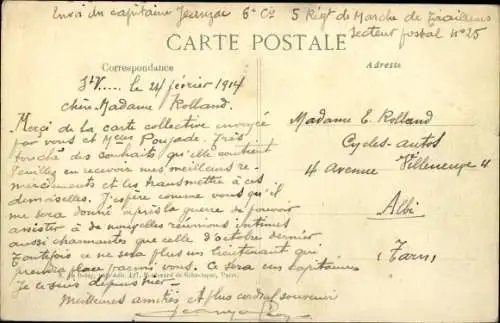 Envoi du capitaine Jeanjac 6e Cie 5 Régt de Marche de Tirailleurs
Secteur postal No 25
CARTE POSTALE
Correspondance
Adresse
St V..... le 24 février 1914
chère Madame Rolland.
Merci de la carte collective envoyée
par vous et Mmes Poujade. Très
touché des souhaits qu'elle contient
Veuillez en recevoir mes meilleurs re-
merciements et les transmettre à ces
demoiselles. J'espère comme vous qu'il
me sera donné après la guerre de pouvoir
assister à de nouvelles réunions intimes
aussi charmantes que celle d'octobre dernier
Toutefois ce ne sera plus un lieutenant qui
prendra place parmi vous. Ce sera un capitaine
Je le suis depuis hier
Meilleures amitiés et plus cordial souvenir
Madame E. Rolland
Cycles-autos
4 Avenue Villeneuve 4
Albi
(Tarn)